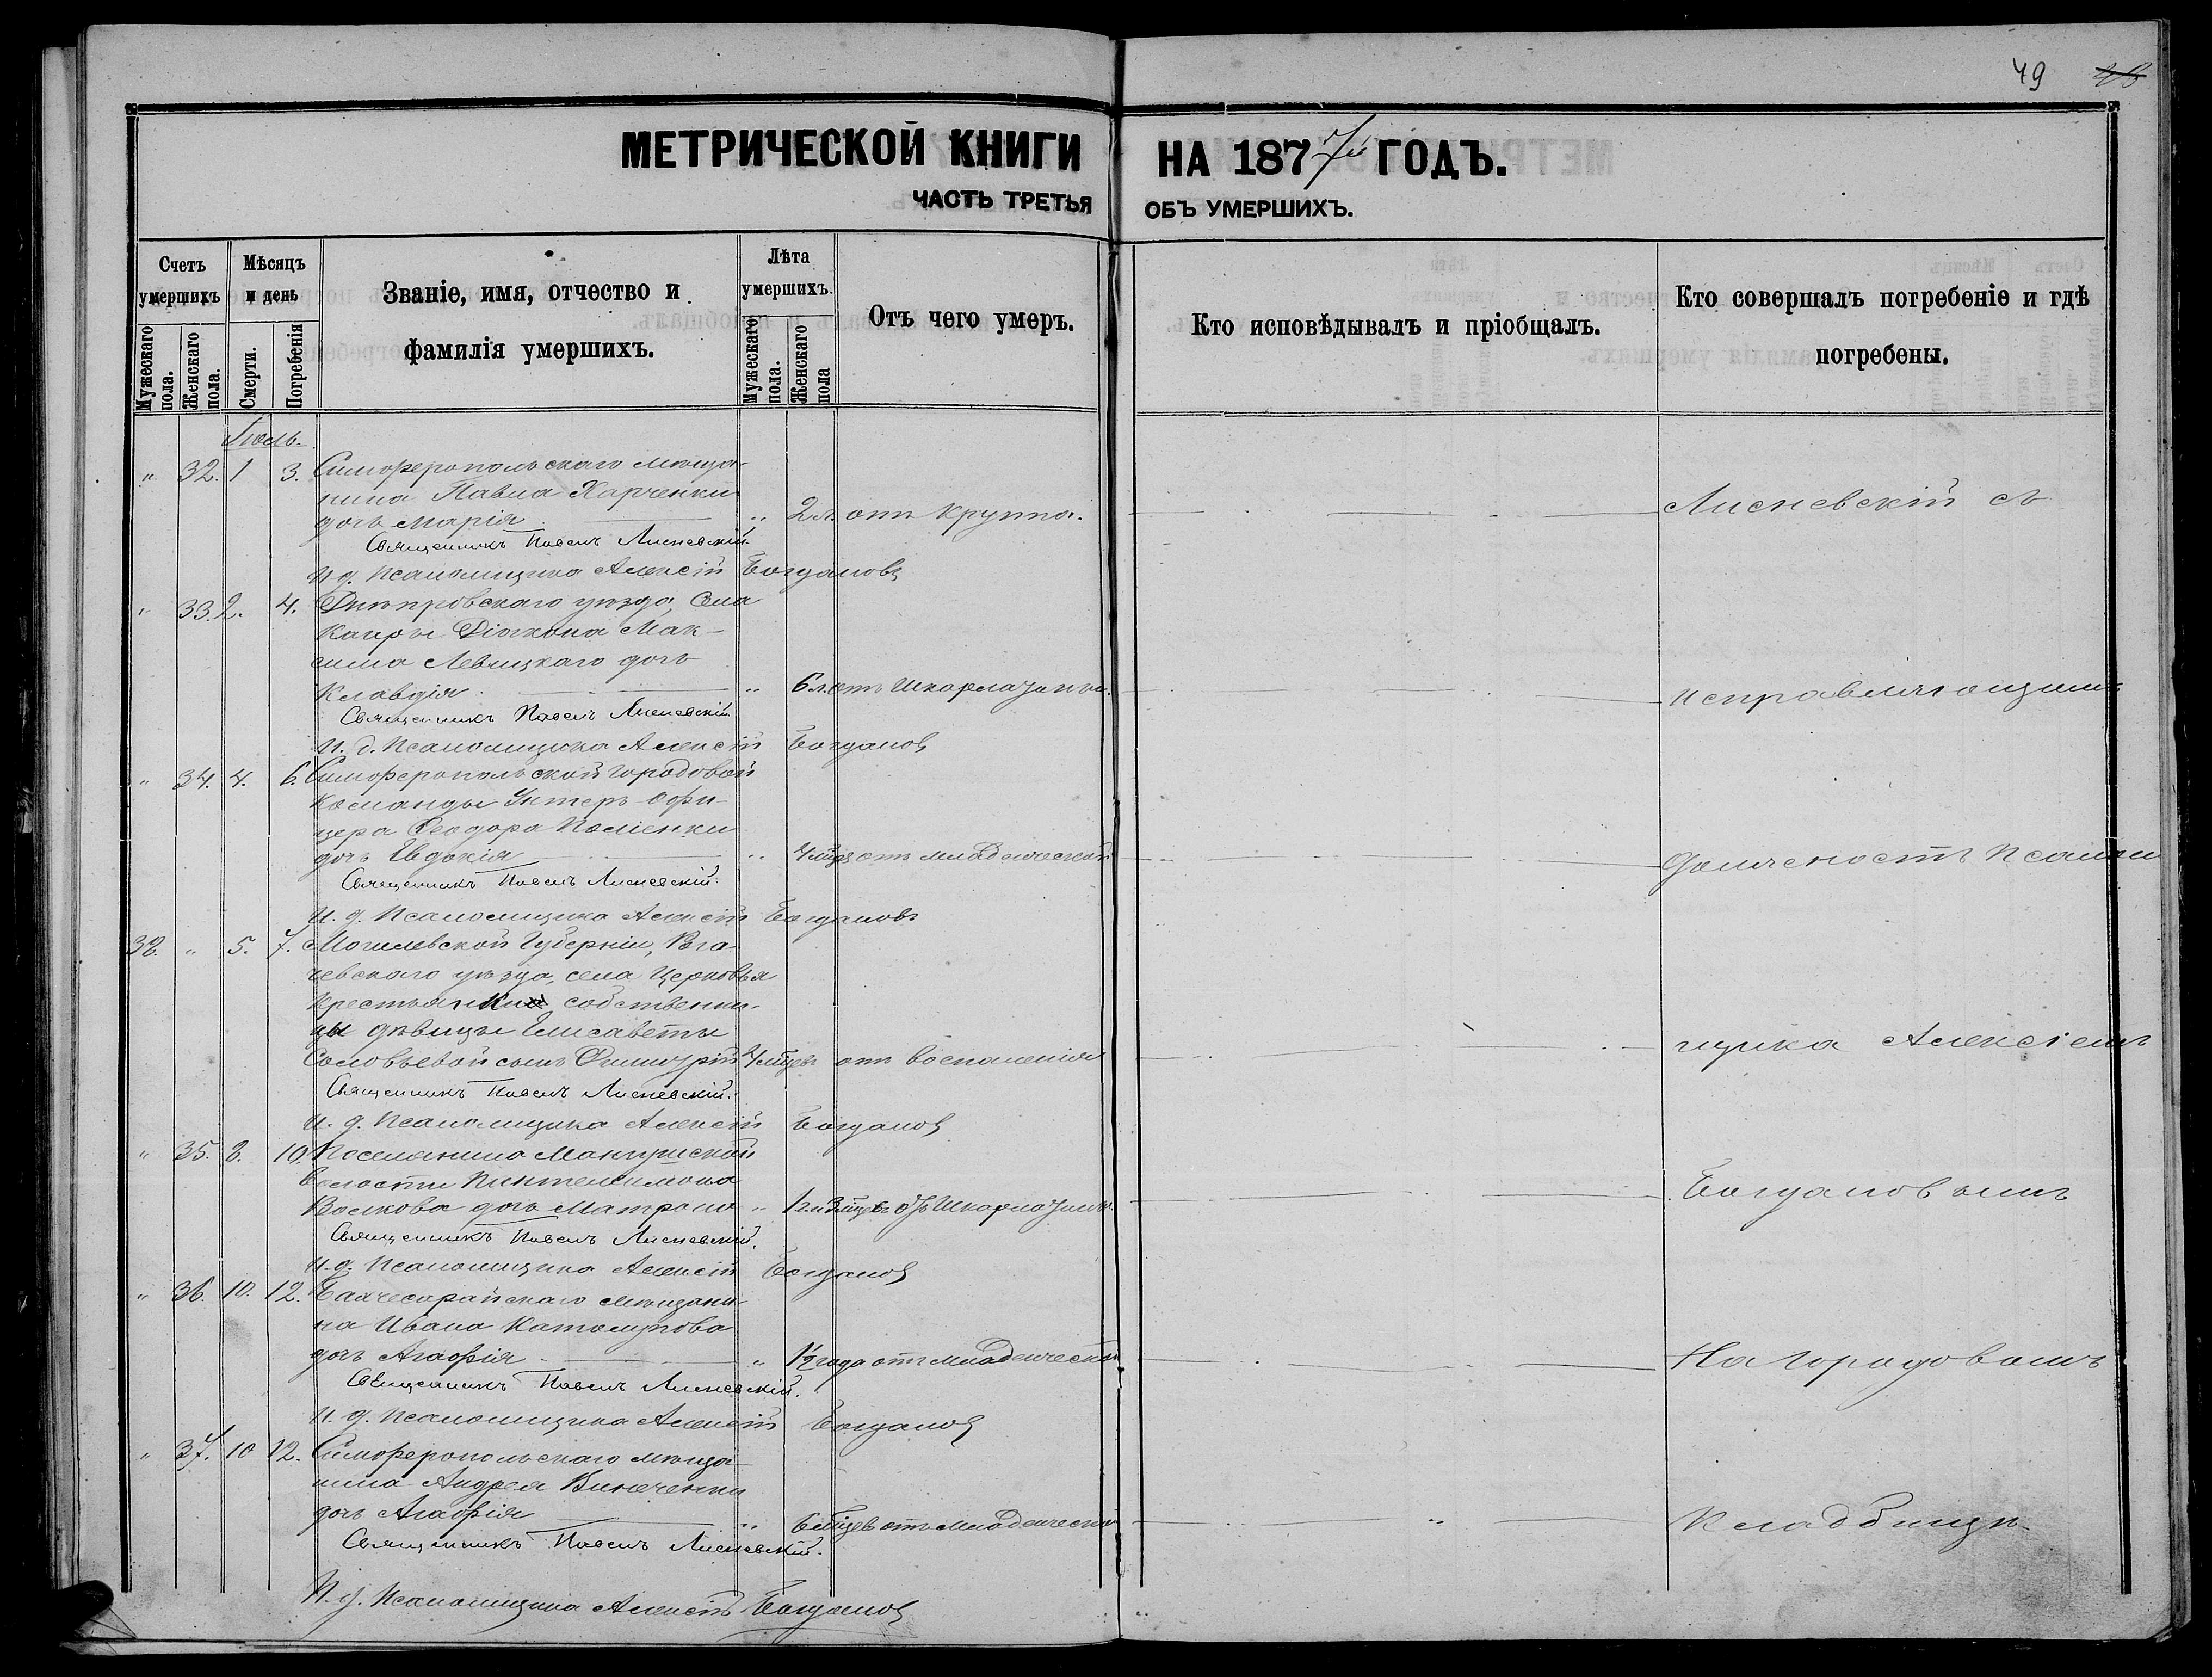 49 48
МЕТРИЧЕСКОЙ КНИГИ НА 1877й ГОДЪ.
ЧАСТЬ ТРЕТЬЯ ОБЪ УМЕРШИХЪ.
Счетъ умершихъ
Мужескаго пола.
Женскаго пола.
Мѣсяцъ и день
Смерти.
Погребенія
Званіе, имя, отчество и фамилія умершихъ.
Лѣта умершихъ.
Мужескаго пола.
Женскаго пола
Отъ чего умеръ.
Кто исповѣдывалъ и пріобщалъ.
Кто совершалъ погребеніе и гдѣ погребены.
Іюль.
" 32. 1 3. Симферопольскаго мѣща-
нина Павла Харченки
дочь Марія " 2 л. отъ крупа. Лисневскій съ
Священникъ Павелъ Лисневскій.
И. д. Псаломщика Алексій Богдановъ
" 33. 2. 4. Днѣпровскаго уѣзда, села
Каиры Діакона Мак-
сима Левицкаго дочь
Клавдія " 6 л. отъ Шкарлатины. исправляющимъ
Священникъ Павелъ Лисневскій
И. д. Псаломщика Алексій Богдановъ
" 34. 4. 6. Симферопольской городовой
команды Унтеръ-офи-
цера Ѳеодора
дочь Евдокія " 4 мѣс. отъ младенческой должность псалом
Священникъ Павелъ Лисневскій.
И. д. Псаломщика Алексій Богдановъ
32. " 5. 7. Могилевской Губерніи, Рога-
чевскаго уѣзда, села Церковья
крестьянки собственни-
цы дѣвицы Елисаветы
Соловьевой сынъ Димитрій 4 мѣсяц. отъ воспаленія щика Алексіемъ
Священникъ Павелъ Лисневскій.
И. д. Псаломщика Алексій Богдановъ
" 35. 8. 10. Поселянина Мангушской
волости Пантелимона
Волкова дочь Матрона " отъ Шкарлатины. Богдановымъ
Священникъ Павелъ Лисневскій.
И. д. Псаломщика Алексій Богдановъ
" 36. 10. 12. Бахчесарайскаго мѣщани-
на Ивана
дочь Агафія " 1½ года отъ младенческой На Городовомъ
Священникъ Павелъ Лисневскій.
И. д. Псаломщика Алексій Богдановъ
" 37. 10 12. Симферопольскаго мѣща-
нина Андрея Винюченки
дочь Агафія " 6 мѣсяцев отъ младенческой " Кладбищѣ.
Священникъ Павелъ Лисневскій.
И. д. Псаломщика Алексѣй Богдановъ